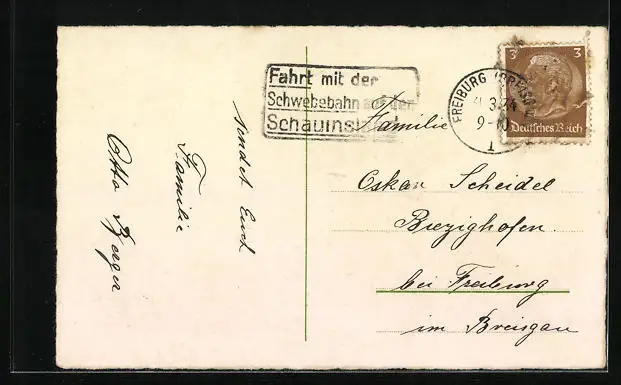 sendet Euch
Familie
Otto Berger
Fahrt mit der
Schwebebahn auf den
Schauinsland
FREIBURG (BREISGAU)
3.34
9-10
1
3 3
Deutsches Reich
Familie
Oskar Scheidel
Buezighofen.
bei Freiburg
im Breisgau